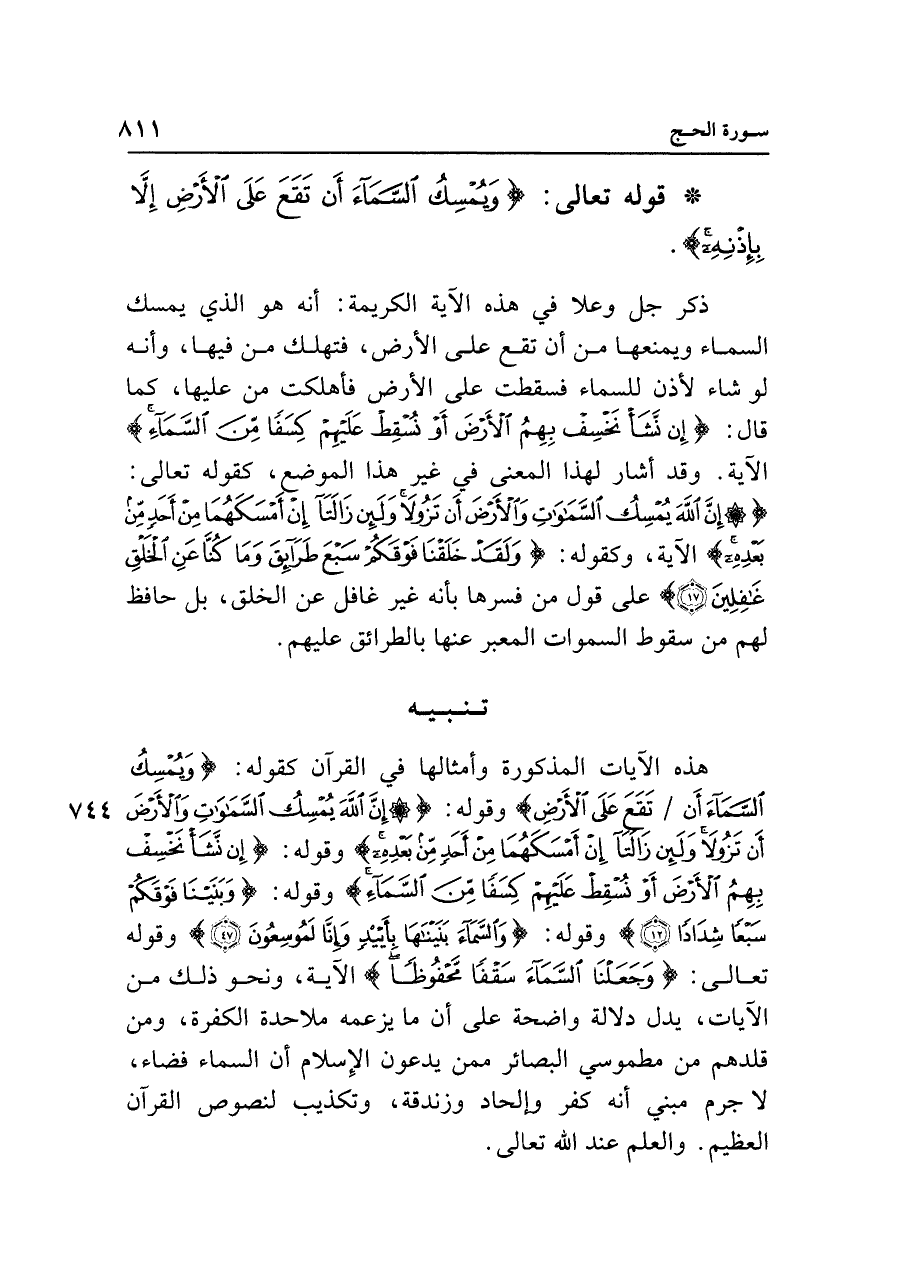 سورة الحج ٨١١
* قوله تعالى: ﴿وَيُمْسِكُ السَّمَآءَ أَن تَقَعَ عَلَى ٱلْأَرْضِ إِلَّا
بِإِذْنِهِۦٓۚ﴾.
ذكر جل وعلا في هذه الآية الكريمة: أنه هو الذي يمسك
السماء ويمنعها من أن تقع على الأرض، فتهلك من فيها، وأنه
لو شاء لأذن للسماء فسقطت على الأرض فأهلكت من عليها، كما
قال: ﴿إِن نَّشَأْ نَخْسِفْ بِهِمُ ٱلْأَرْضَ أَوْ نُسْقِطْ عَلَيْهِمْ كِسَفًا مِّنَ ٱلسَّمَآءِۚ﴾
الآية. وقد أشار لهذا المعنى في غير هذا الموضع، كقوله تعالى:
﴿۞ إِنَّ ٱللَّهَ يُمْسِكُ ٱلسَّمَٰوَٰتِ وَٱلْأَرْضَ أَن تَزُولَاۚ وَلَئِن زَالَتَآ إِنْ أَمْسَكَهُمَا مِنْ أَحَدٍ مِّنۢ
بَعْدِهِۦٓۚ﴾ الآية، وكقوله: ﴿وَلَقَدْ خَلَقْنَا فَوْقَكُمْ سَبْعَ طَرَآئِقَ وَمَا كُنَّا عَنِ ٱلْخَلْقِ
غَٰفِلِينَ ١٧﴾ على قول من فسرها بأنه غير غافل عن الخلق، بل حافظ
لهم من سقوط السموات المعبر عنها بالطرائق عليهم.
تنبيه
هذه الآيات المذكورة وأمثالها في القرآن كقوله: ﴿وَيُمْسِكُ
ٱلسَّمَآءَ أَن / تَقَعَ عَلَى ٱلْأَرْضِ﴾ وقوله: ﴿۞ إِنَّ ٱللَّهَ يُمْسِكُ ٱلسَّمَٰوَٰتِ وَٱلْأَرْضَ ٧٤٤
أَن تَزُولَاۚ وَلَئِن زَالَتَآ إِنْ أَمْسَكَهُمَا مِنْ أَحَدٍ مِّنۢ بَعْدِهِۦٓۚ﴾ وقوله: ﴿إِن نَّشَأْ نَخْسِفْ
بِهِمُ ٱلْأَرْضَ أَوْ نُسْقِطْ عَلَيْهِمْ كِسَفًا مِّنَ ٱلسَّمَآءِۚ﴾ وقوله: ﴿وَبَنَيْنَا فَوْقَكُمْ
سَبْعًا شِدَادًا ١٢﴾ وقوله: ﴿وَٱلسَّمَآءَ بَنَيْنَٰهَا بِأَيْي۟دٍ وَإِنَّا لَمُوسِعُونَ ٤٧﴾ وقوله
تعالى: ﴿وَجَعَلْنَا ٱلسَّمَآءَ سَقْفًا مَّحْفُوظًاۖ﴾ الآية، ونحو ذلك من
الآيات، يدل دلالة واضحة على أن ما يزعمه ملاحدة الكفرة، ومن
قلدهم من مطموسي البصائر ممن يدعون الإسلام أن السماء فضاء،
لا جرم مبني أنه كفر وإلحاد وزندقة، وتكذيب لنصوص القرآن
العظيم. والعلم عند الله تعالى.